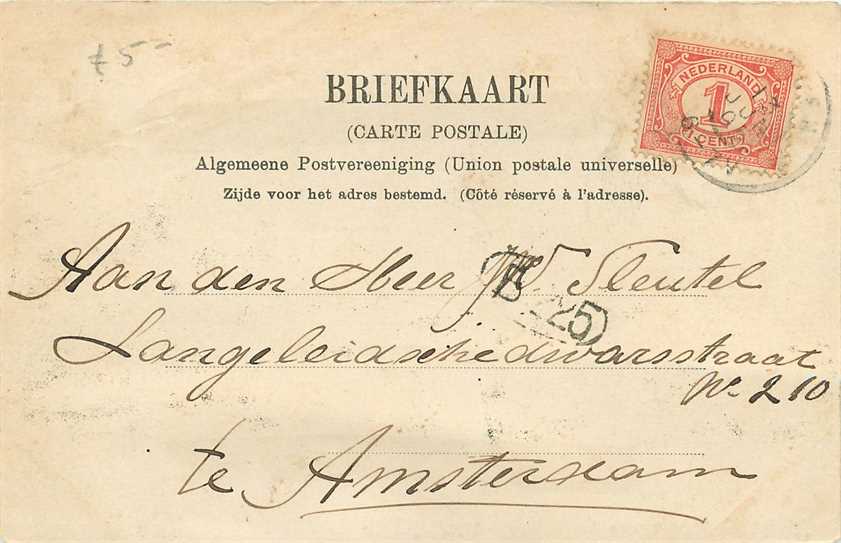 £ 5-
BRIEFKAART
(CARTE POSTALE)
Algemeene Postvereeniging (Union postale universelle)
Zijde voor het adres bestemd. (Côté réservé à l'adresse).
NEDERLAND
1
CENT
Aan den Heer Sleutel
25
Langeleidschedwarsstraat
No. 210
te Amsterdam